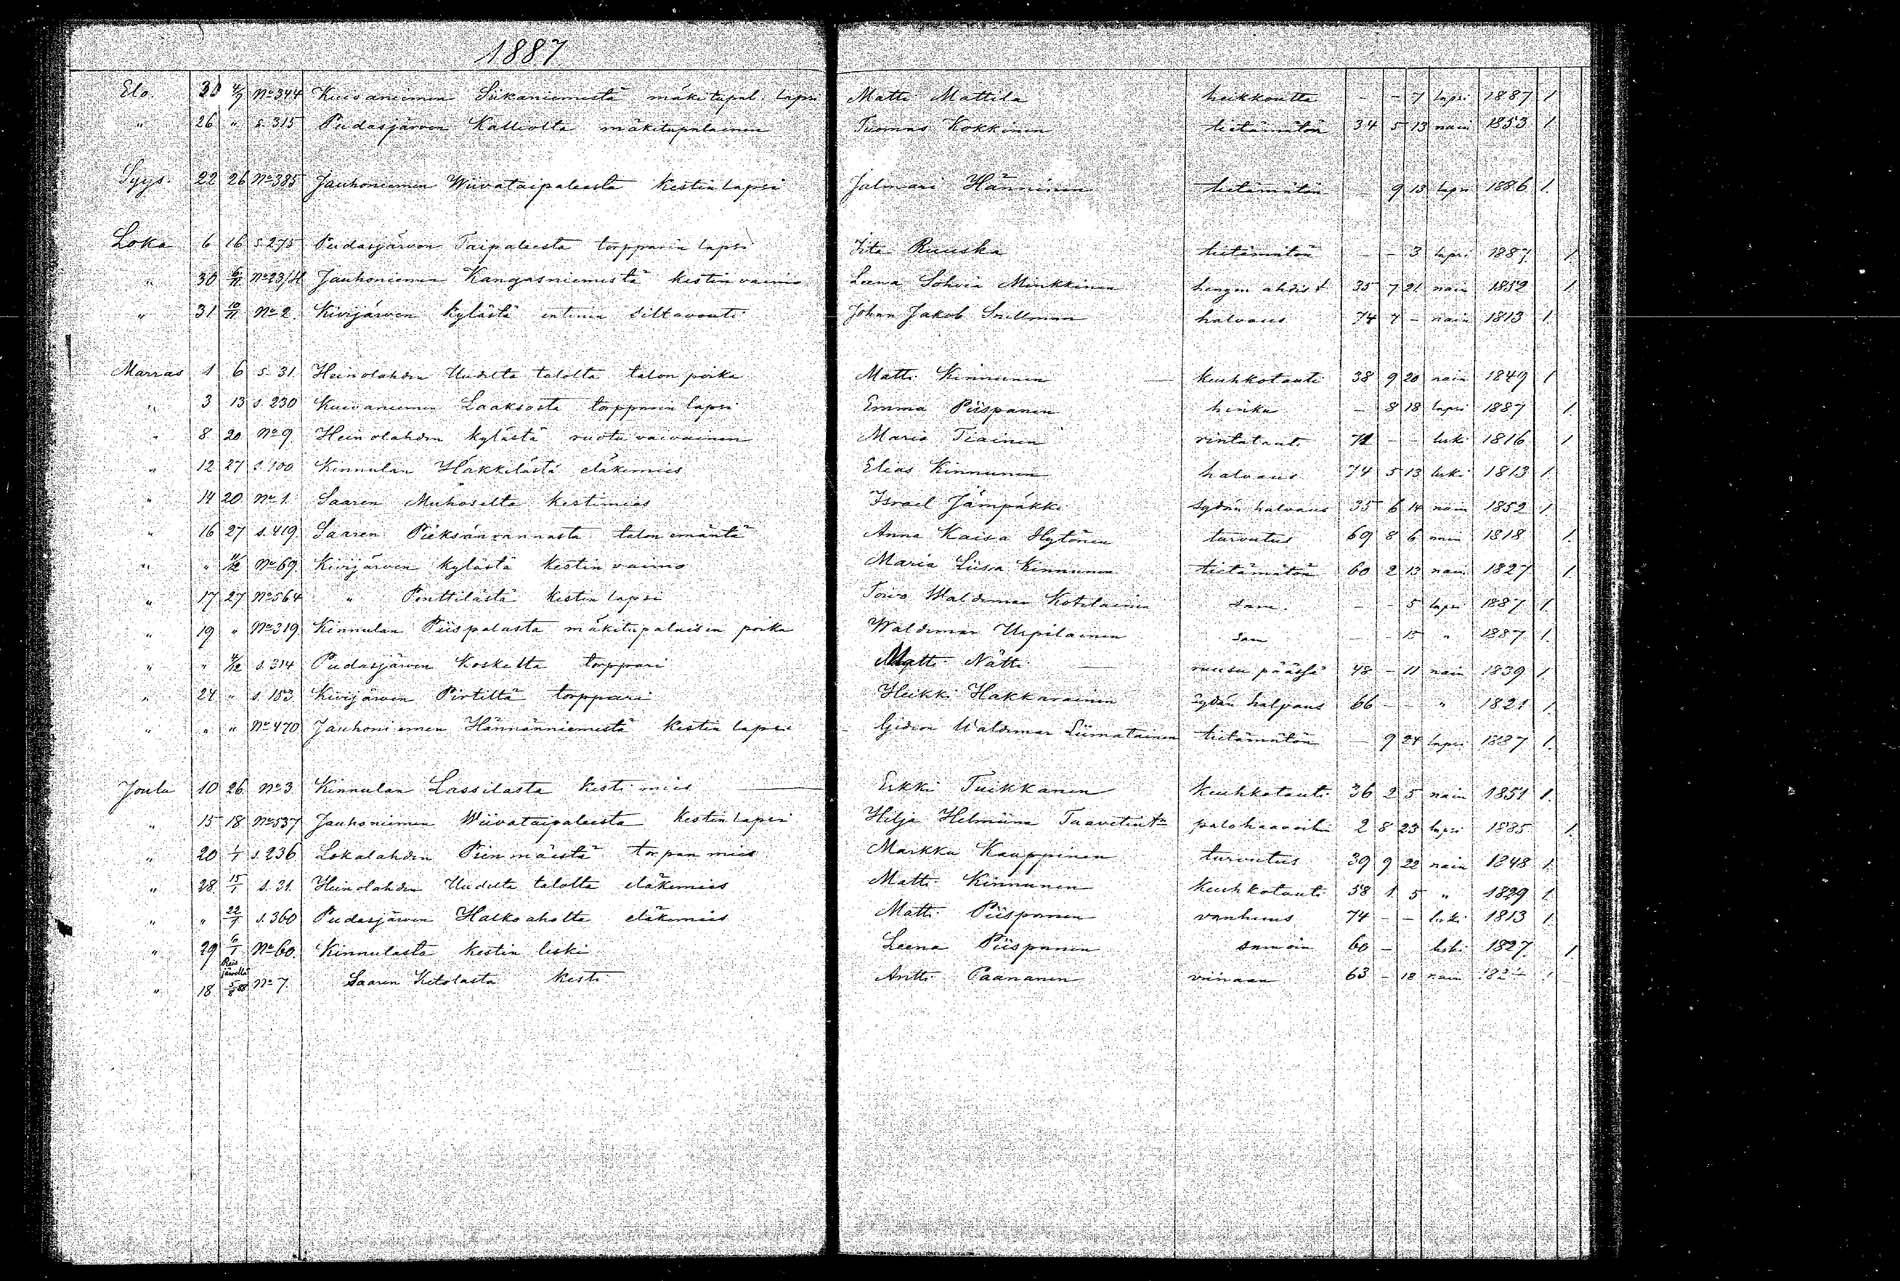 1887
Elo. 20 4/9 No 344 Kuivaniemen Siikaniemestä mäkitupal. lapsi Matti Mattila heikkoutta - - 7 lapsi 1887 1
" 26 " s. 315 Pudasjärven Kalliolta mäkitupalainen Tuomas Kokkinen tietämätön 34 5 13 nain 1853 1
Syys. 22 26 No 385 Jauhoniemen Wiivataipaleesta Kestin lapsi Jalmari Hänninen tietämätön - 9 13 lapsi 1886 1.
Loka 6 16 s. 275 Pudasjärven Taipaleesta torpparin lapsi Iita Ruuska tietämätön - - 3 lapsi 1887. 1
" 30 6/11 Jauhoniemen Kangasniemestä Kestin vaimo Leena Sohvia Minkkinen hengen ahdist 35 7 21 nain 1852 1
" 31 10/11 No 2. Kivijärven kylästä entinen siltavouti Johan Jakob Snellman halvaus 74 7 - nain 1813 1
Marras 1 6 s. 31. Heinolahden Uudelta talolta talon poika Matti Kinnunen keuhkotauti 38 9 20 nain 1849 1
" 3 13 s. 230 Kuivaniemen Laaksosta torpparin lapsi Emma Piispanen hinku - 8 18 lapsi 1887 1
" 8 20 No 9. Heinolahden kylästä ruotu vaivainen Maria Tiainen rintatauti 71 - - leski 1816 1
" 12 27 s. 100 Kinnulan Häkkilästä eläkemies Elias Kinnunen halvaus 74 5 13 leski 1813 1
" 14 20 No 1. Saaren Muhoselta kestimies Israel Jämpäkki sydän halvaus 35 6 14 nain 1852 1
" 16 27 s. 419. Saaren Pieksänrannasta talon emäntä Anna Kaisa Hytönen turvotus 69 8 6 nain 1818 1.
" " 4/12 No 69. Kivijärven kylästä Kestin vaimo Maria Liisa Kinnunen tietämätön 60 2 13 nain 1827 1.
" 17 27 No 564 " Penttilästä Kestin lapsi Toivo Waldemar Kotilainen sam. - - 5 lapsi 1887 1.
" 19 " No 319 Kinnulan Piispalasta mäkitupalaisen poika Waldemar Urpilainen sam - - 15 " 1887 1.
" " 4/12 s. 314 Pudasjärven Koskelta torppari Matti Nätti ruusu päässä 48 - 11 nain 1839 1
" 24 " s. 153 Kivijärven Pirtiltä torppari Heikki Hakkarainen sydän halvaus 66 - - " 1821 1.
" " " No 470 Jauhoniemen Hännänniemestä Kestin lapsi Gideon Waldemar Liimatainen tietämätön - 9 24 lapsi 1887 1.
Joulu 10 26 No 3. Kinnulan Lassilasta Kesti mies Erkki Tuikkanen Keuhkotauti 36 2 5 nain 1851 1.
" 15 18 No 537 Jauhoniemen Wiivataipaleesta Kestin lapsi Hilja Helmiina Taavetint. palohaavoihin 2 8 23 lapsi 1885 1.
" 20 1/1 s. 236 Lokalahden Pienmäestä torpan mies Markku Kauppinen turvotus 39 9 22 nain 1848 1.
" 28 15/1 s. 31. Heinolahden Uudelta talolta eläkemies Matti Kinnunen Keuhkotauti 58 1 5 " 1829 1.
" " 22/1 s. 360 Pudasjärven Halkoaholta eläkemies Matti Piispanen vanhuus 74 - - leski 1813 1
" 29 6/1 No 60. Kinnulasta Kestin leski Leena Piispanen samoin 60 - leski 1827. 1
Reisjärvellä
" 18 5/8 88 No 7. Saaren Ketolasta Kesti Antti Paananen viinaan 63 - 18 nain